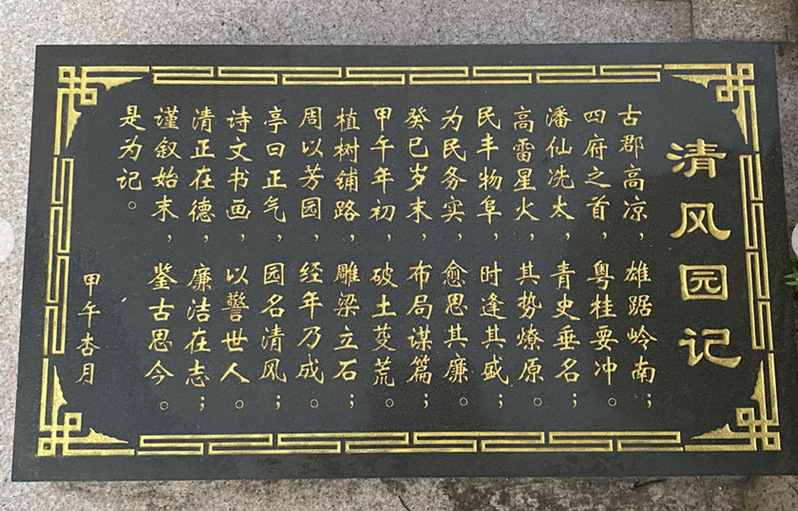 清风园记
古郡高凉，雄踞岭南；
四府之首，粤桂要冲。
潘仙冼太，青史垂名；
高雷星火，其势燎原。
民丰物阜，时逢其盛；
为民务实，愈思其廉。
癸巳岁末，布局谋篇；
甲午年初，破土芟荒。
植树铺路，雕梁立石；
周以芳园，经年乃成。
亭曰正气，园名清风；
诗文书画，以警世人。
清正在德，廉洁在志；
谨叙始末，鉴古思今。
是为记。
甲午杏月